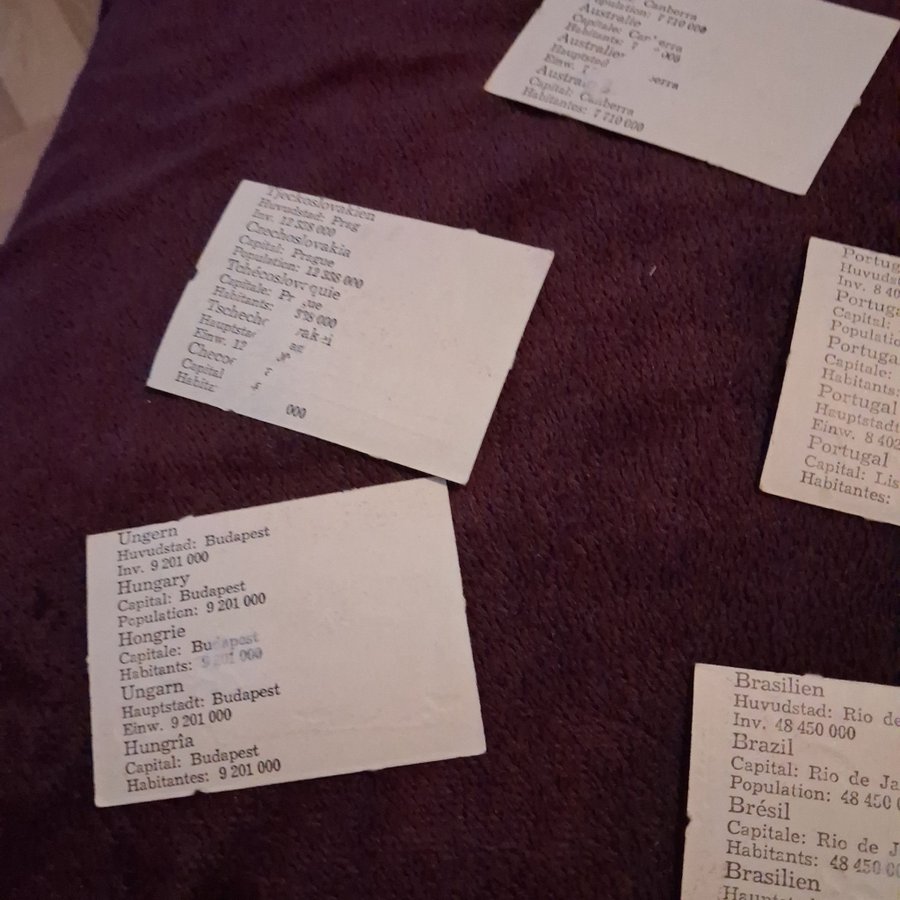 Canberra
7 710 000
Australie
Capitale:
Habitants: 7
Hauptstad
Einw. 7
Capital: Canberra
Habitantes: 7 710 000
Tjeckoslovakien
Huvudstad: Prag
Inv. 12 338 000
Czechoslovakia
Capital: Prague
Population: 12 338 000
Capitale: Pr ue
Habitants: 338 000
Tschech
Hauptsta
Einw. 12
Capital
000
Portug
Huvuds
Inv. 8 40
Portuga
Capital:
Populatio
Portuga
Capitale:
Habitants:
Portugal
Hauptstadt
Einw. 8 402
Portugal
Capital: Lis
Habitantes:
Ungern
Huvudstad: Budapest
Inv. 9 201 000
Hungary
Capital: Budapest
Population: 9 201 000
Hongrie
Capitale: Budapest
Habitants: 9 201 000
Ungarn
Hauptstadt: Budapest
Einw. 9 201 000
Hungrîa
Capital: Budapest
Habitantes: 9 201 000
Brasilien
Huvudstad: Rio de
Inv. 48 450 000
Brazil
Capital: Rio de Ja
Population: 48 450 0
Brésil
Capitale: Rio de J
Habitants: 48 450 00
Brasilien